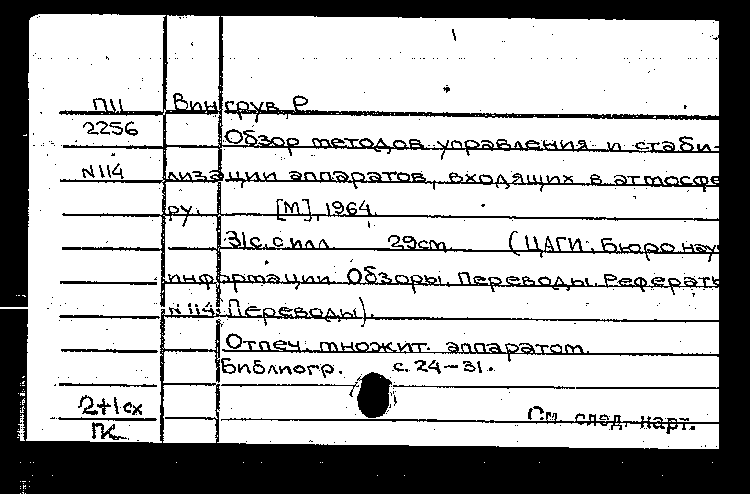 П11 Вингрув, Р.
2256 Обзор методов управления и стаби-
N114 лизации аппаратов, входящих в атмосфе
ру. [М], 1964.
31с. с илл. 29см. (ЦАГИ. Бюро науч
информации. Обзоры. Переводы. Рефераты
N 114. Переводы).
Отпеч. множит. аппаратом.
Библиогр. с. 24-31.
2+1сх См. след. карт.
ПК